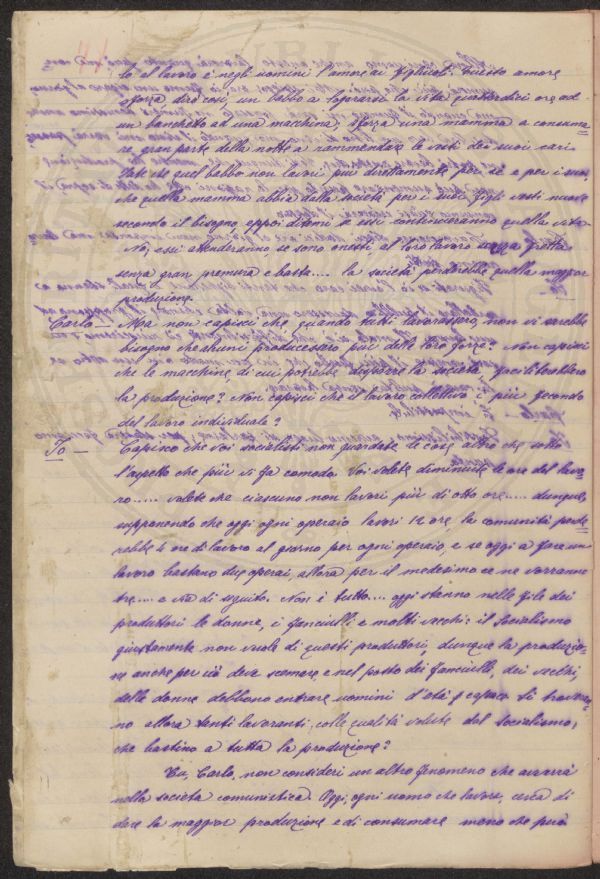 lo al lavoro è negli uomini l'amore ai figliuoli. Questo amore
sforza, dirò così, un babbo a logorarsi la vita quattordici ore ad
un banchetto, ad una macchina, sforza una mamma a consuma-
re gran parte della notte a rammendare le vesti dei suoi cari.
Fate che quel babbo non lavori più direttamente per sé e per i suoi,
che quella mamma abbia dalla società per i suoi figli vesti nuove
secondo il bisogno, eppoi ditemi se essi continueranno quella vita.
No, essi attenderanno se sono onesti, al loro lavoro senza fretta
senza gran premura e basta.... la società perderebbe quella maggior
produzione.
Carlo — Ma non capisci che, quando tutti lavorassero, non vi sarebbe
bisogno che alcuni producessero più delle loro forze? Non capisci
che le macchine, di cui potrebbe disporre la società faciliterebbero
la produzione? Non capisci che il lavoro collettivo è più fecondo
del lavoro individuale?
Io — Capisco che voi socialisti non guardate le cose altro che sotto
l'aspetto che più vi fa comodo. Voi volete diminuire le ore del lavo-
ro..... volete che ciascuno non lavori più di otto ore..... dunque,
supponendo che oggi ogni operaio lavori 12 ore, la comunità perde-
rebbe 4 ore di lavoro al giorno per ogni operaio, e se oggi a fare un
lavoro bastano due operai, allora per il medesimo ce ne vorranno
tre.... e via di seguito. Non è tutto.... oggi stanno nelle file dei
produttori le donne, i fanciulli e molti vecchi: il socialismo
giustamente non vuole di questi produttori, dunque la produzio-
ne anche per ciò deve scemare, e nel posto dei fanciulli, dei vecchi,
delle donne debbono entrare uomini d'età capace. Si trovera-
no allora tanti lavoranti, colle qualità volute dal socialismo,
che bastino a tutta la produzione?
Tu, Carlo, non consideri un altro fenomeno che avverrà
nella società comunistica. Oggi, ogni uomo che lavora, cerca di
dare la maggior produzione e di consumare meno che può